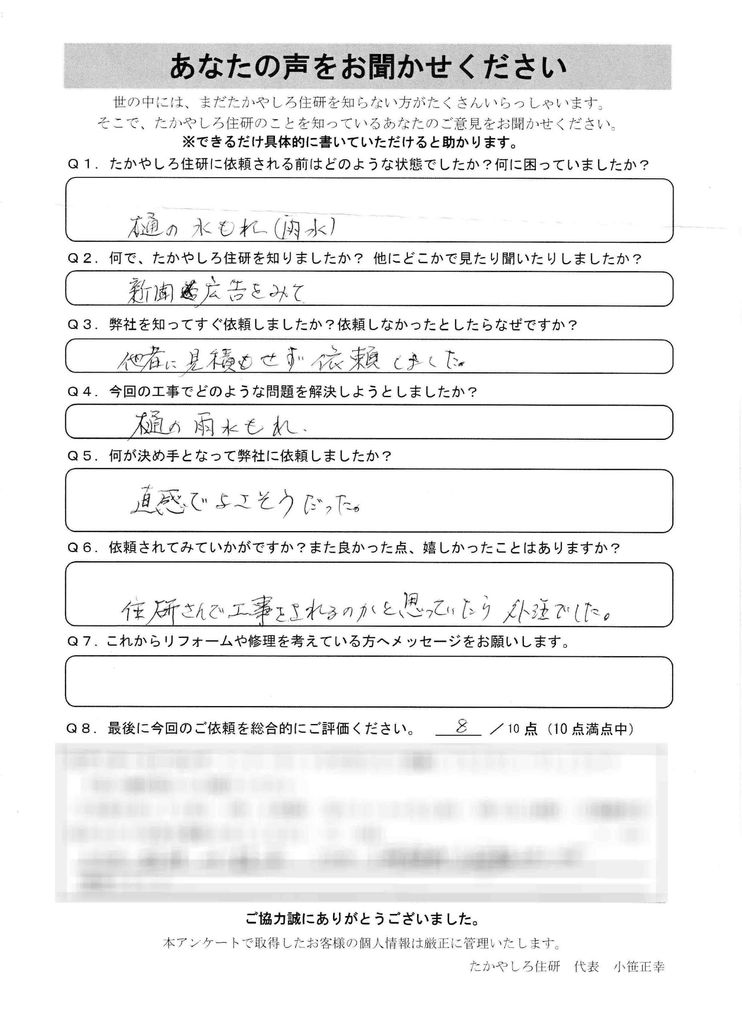 あなたの声をお聞かせください
世の中には、まだたかやしろ住研を知らない方がたくさんいらっしゃいます。
そこで、たかやしろ住研のことを知っているあなたのご意見をお聞かせください。
※できるだけ具体的に書いていただけると助かります。
Q1．たかやしろ住研に依頼される前はどのような状態でしたか？何に困っていましたか？
樋の水もれ（雨水）
Q2．何で、たかやしろ住研を知りましたか？ 他にどこかで見たり聞いたりしましたか？
新聞広告をみて
Q3．弊社を知ってすぐ依頼しましたか？依頼しなかったとしたらなぜですか？
他者に見積もせず依頼しました。
Q4．今回の工事でどのような問題を解決しようとしましたか？
樋の雨水もれ．
Q5．何が決め手となって弊社に依頼しましたか？
直感でよさそうだった。
Q6．依頼されてみていかがですか？また良かった点、嬉しかったことはありますか？
住研さんで工事をされるのかと思っていたら外注でした。
Q7．これからリフォームや修理を考えている方へメッセージをお願いします。
Q8．最後に今回のご依頼を総合的にご評価ください。 8 ／10点（10点満点中）
ご協力誠にありがとうございました。
本アンケートで取得したお客様の個人情報は厳正に管理いたします。
たかやしろ住研　代表　小笹正幸